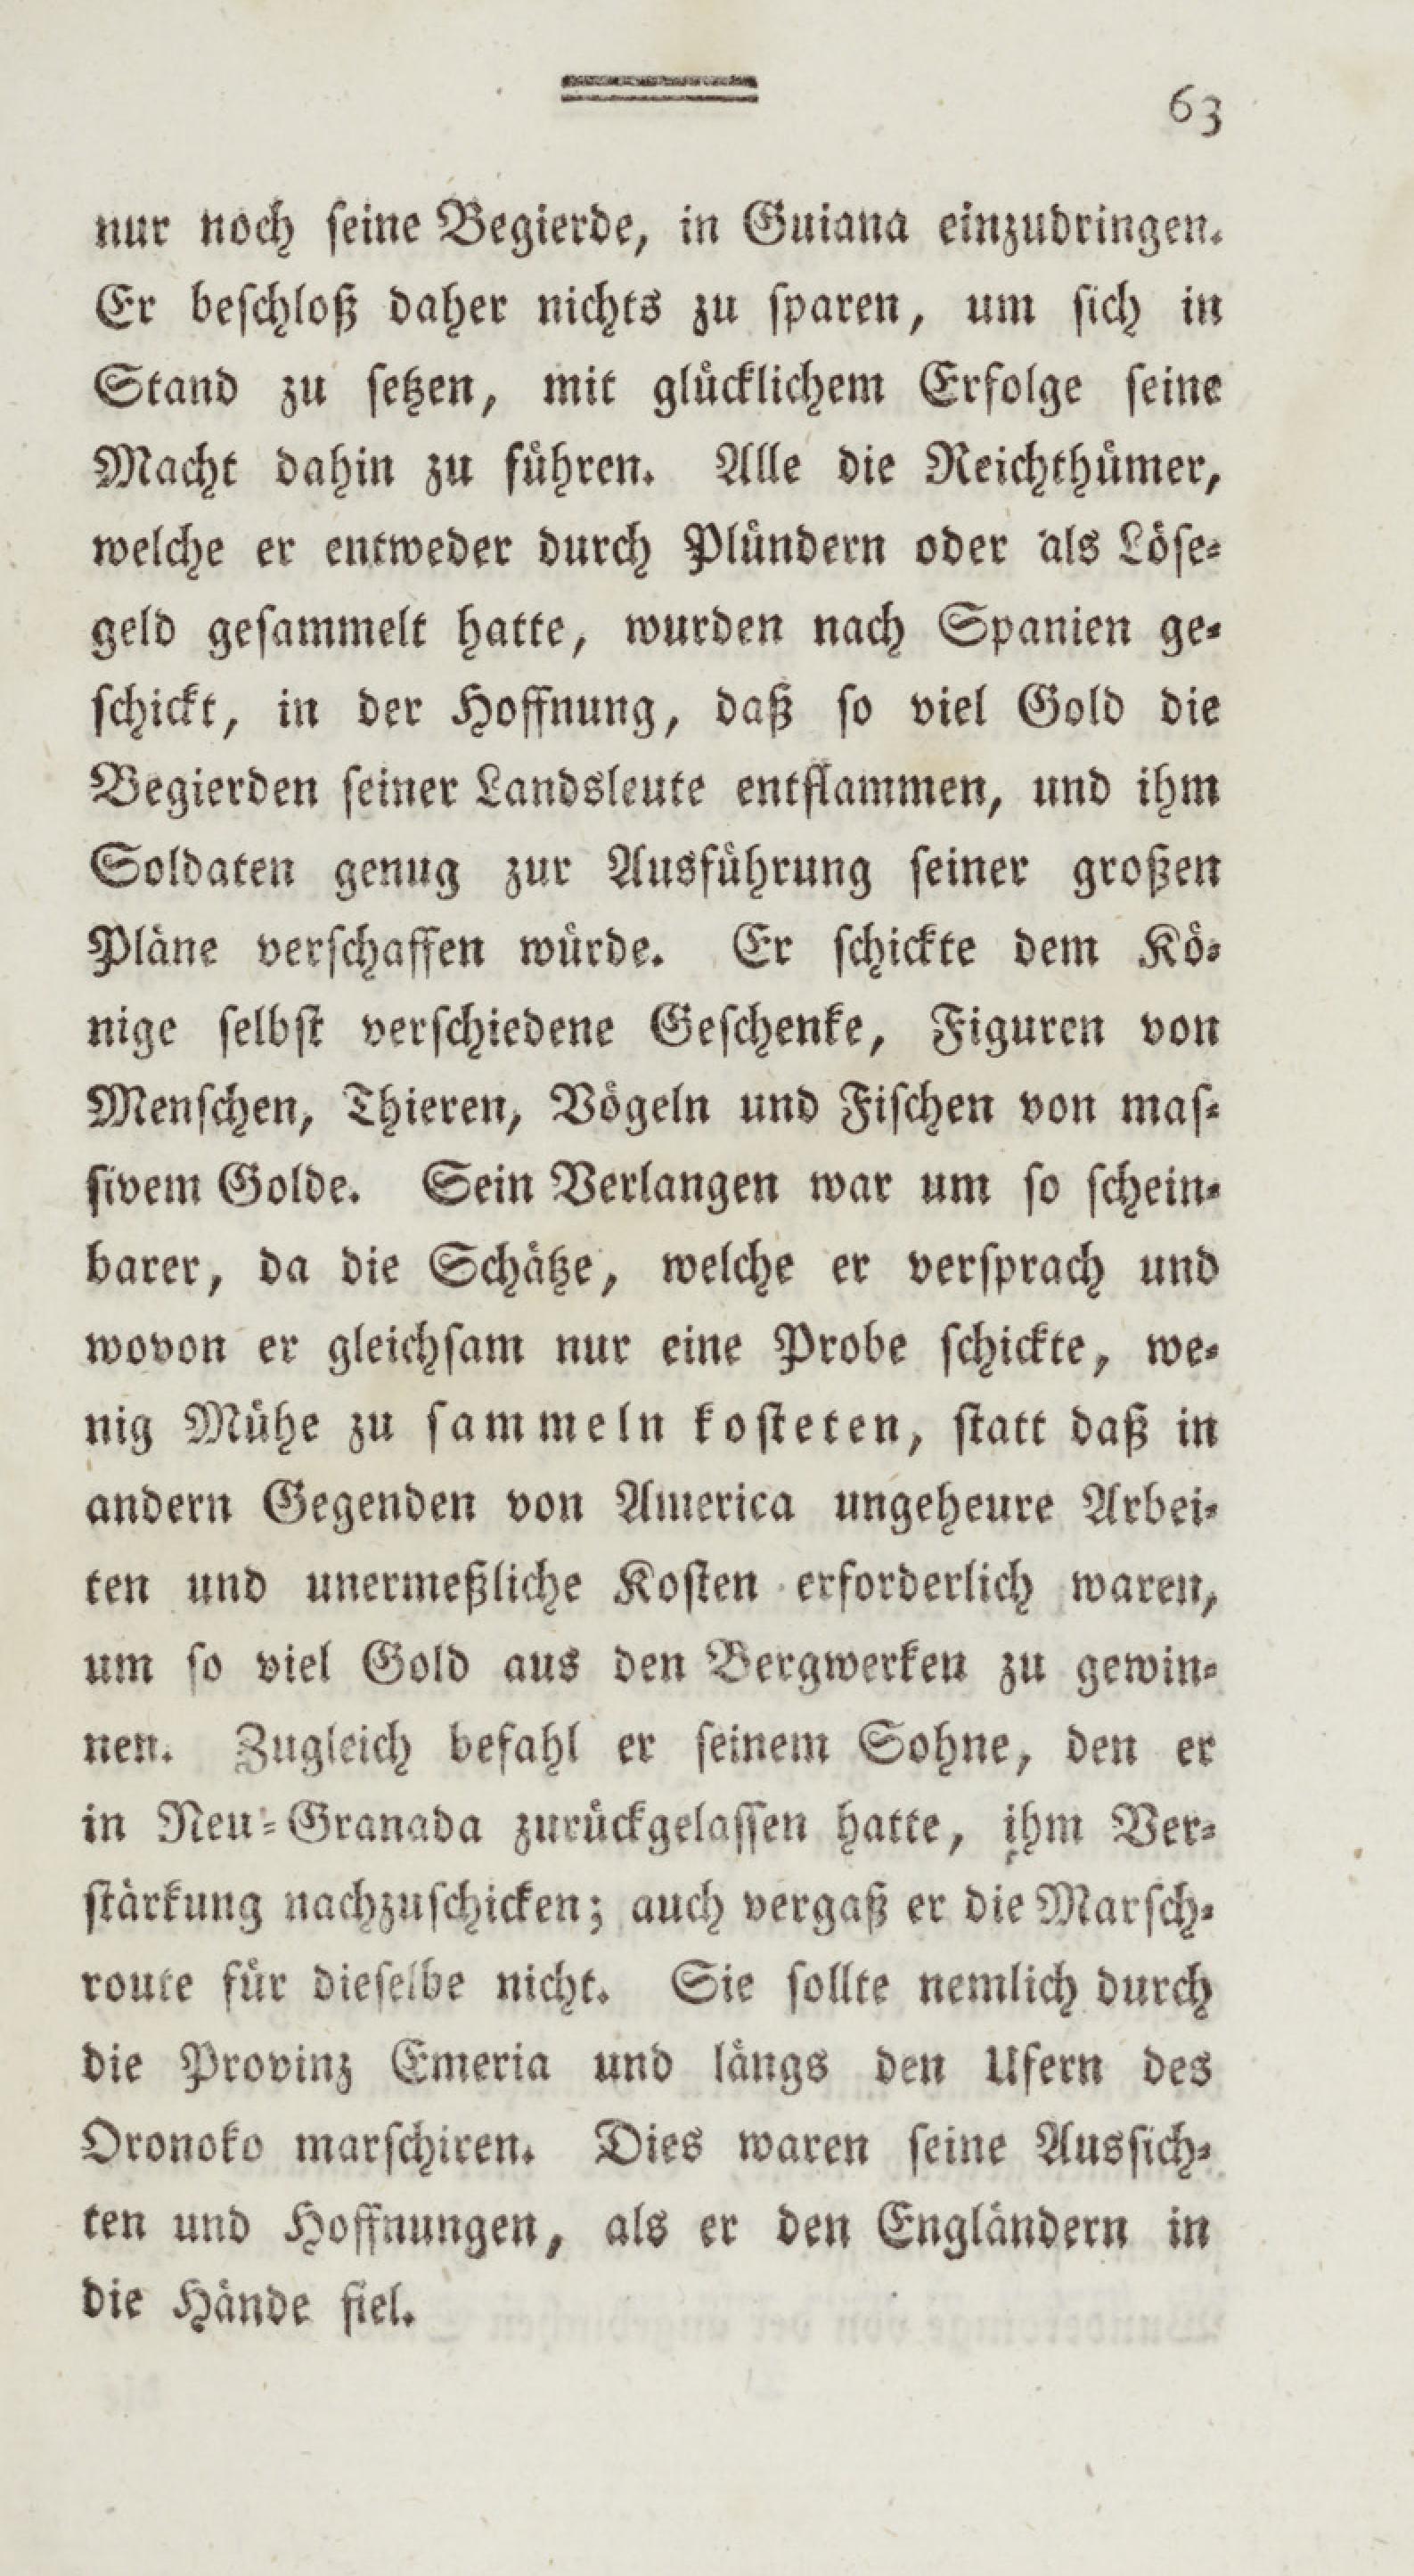 63
nur noch seine Begierde, in Guiana einzudringen.
Er beschloß daher nichts zu sparen, um sich in
Stand zu setzen, mit glücklichem Erfolge seine
Macht dahin zu führen. Alle die Reichthümer,
welche er entweder durch Plündern oder als Löse-
geld gesammelt hatte, wurden nach Spanien ge-
schickt, in der Hoffnung, daß so viel Gold die
Begierden seiner Landsleute entflammen, und ihm
Soldaten genug zur Ausführung seiner großen
Pläne verschaffen würde. Er schickte dem Kö-
nige selbst verschiedene Geschenke, Figuren von
Menschen, Thieren, Vögeln und Fischen von mas-
sivem Golde. Sein Verlangen war um so schein-
barer, da die Schätze, welche er versprach und
wovon er gleichsam nur eine Probe schickte, we-
nig Mühe zu sammeln kosteten, statt daß in
andern Gegenden von America ungeheure Arbei-
ten und unermeßliche Kosten erforderlich waren,
um so viel Gold aus den Bergwerken zu gewin-
nen. Zugleich befahl er seinem Sohne, den er
in Neu-Granada zurückgelassen hatte, ihm Ver-
stärkung nachzuschicken; auch vergaß er die Marsch-
route für dieselbe nicht. Sie sollte nemlich durch
die Provinz Emeria und längs den Ufern des
Oronoko marschiren. Dies waren seine Aussich-
ten und Hoffnungen, als er den Engländern in
die Hände fiel.